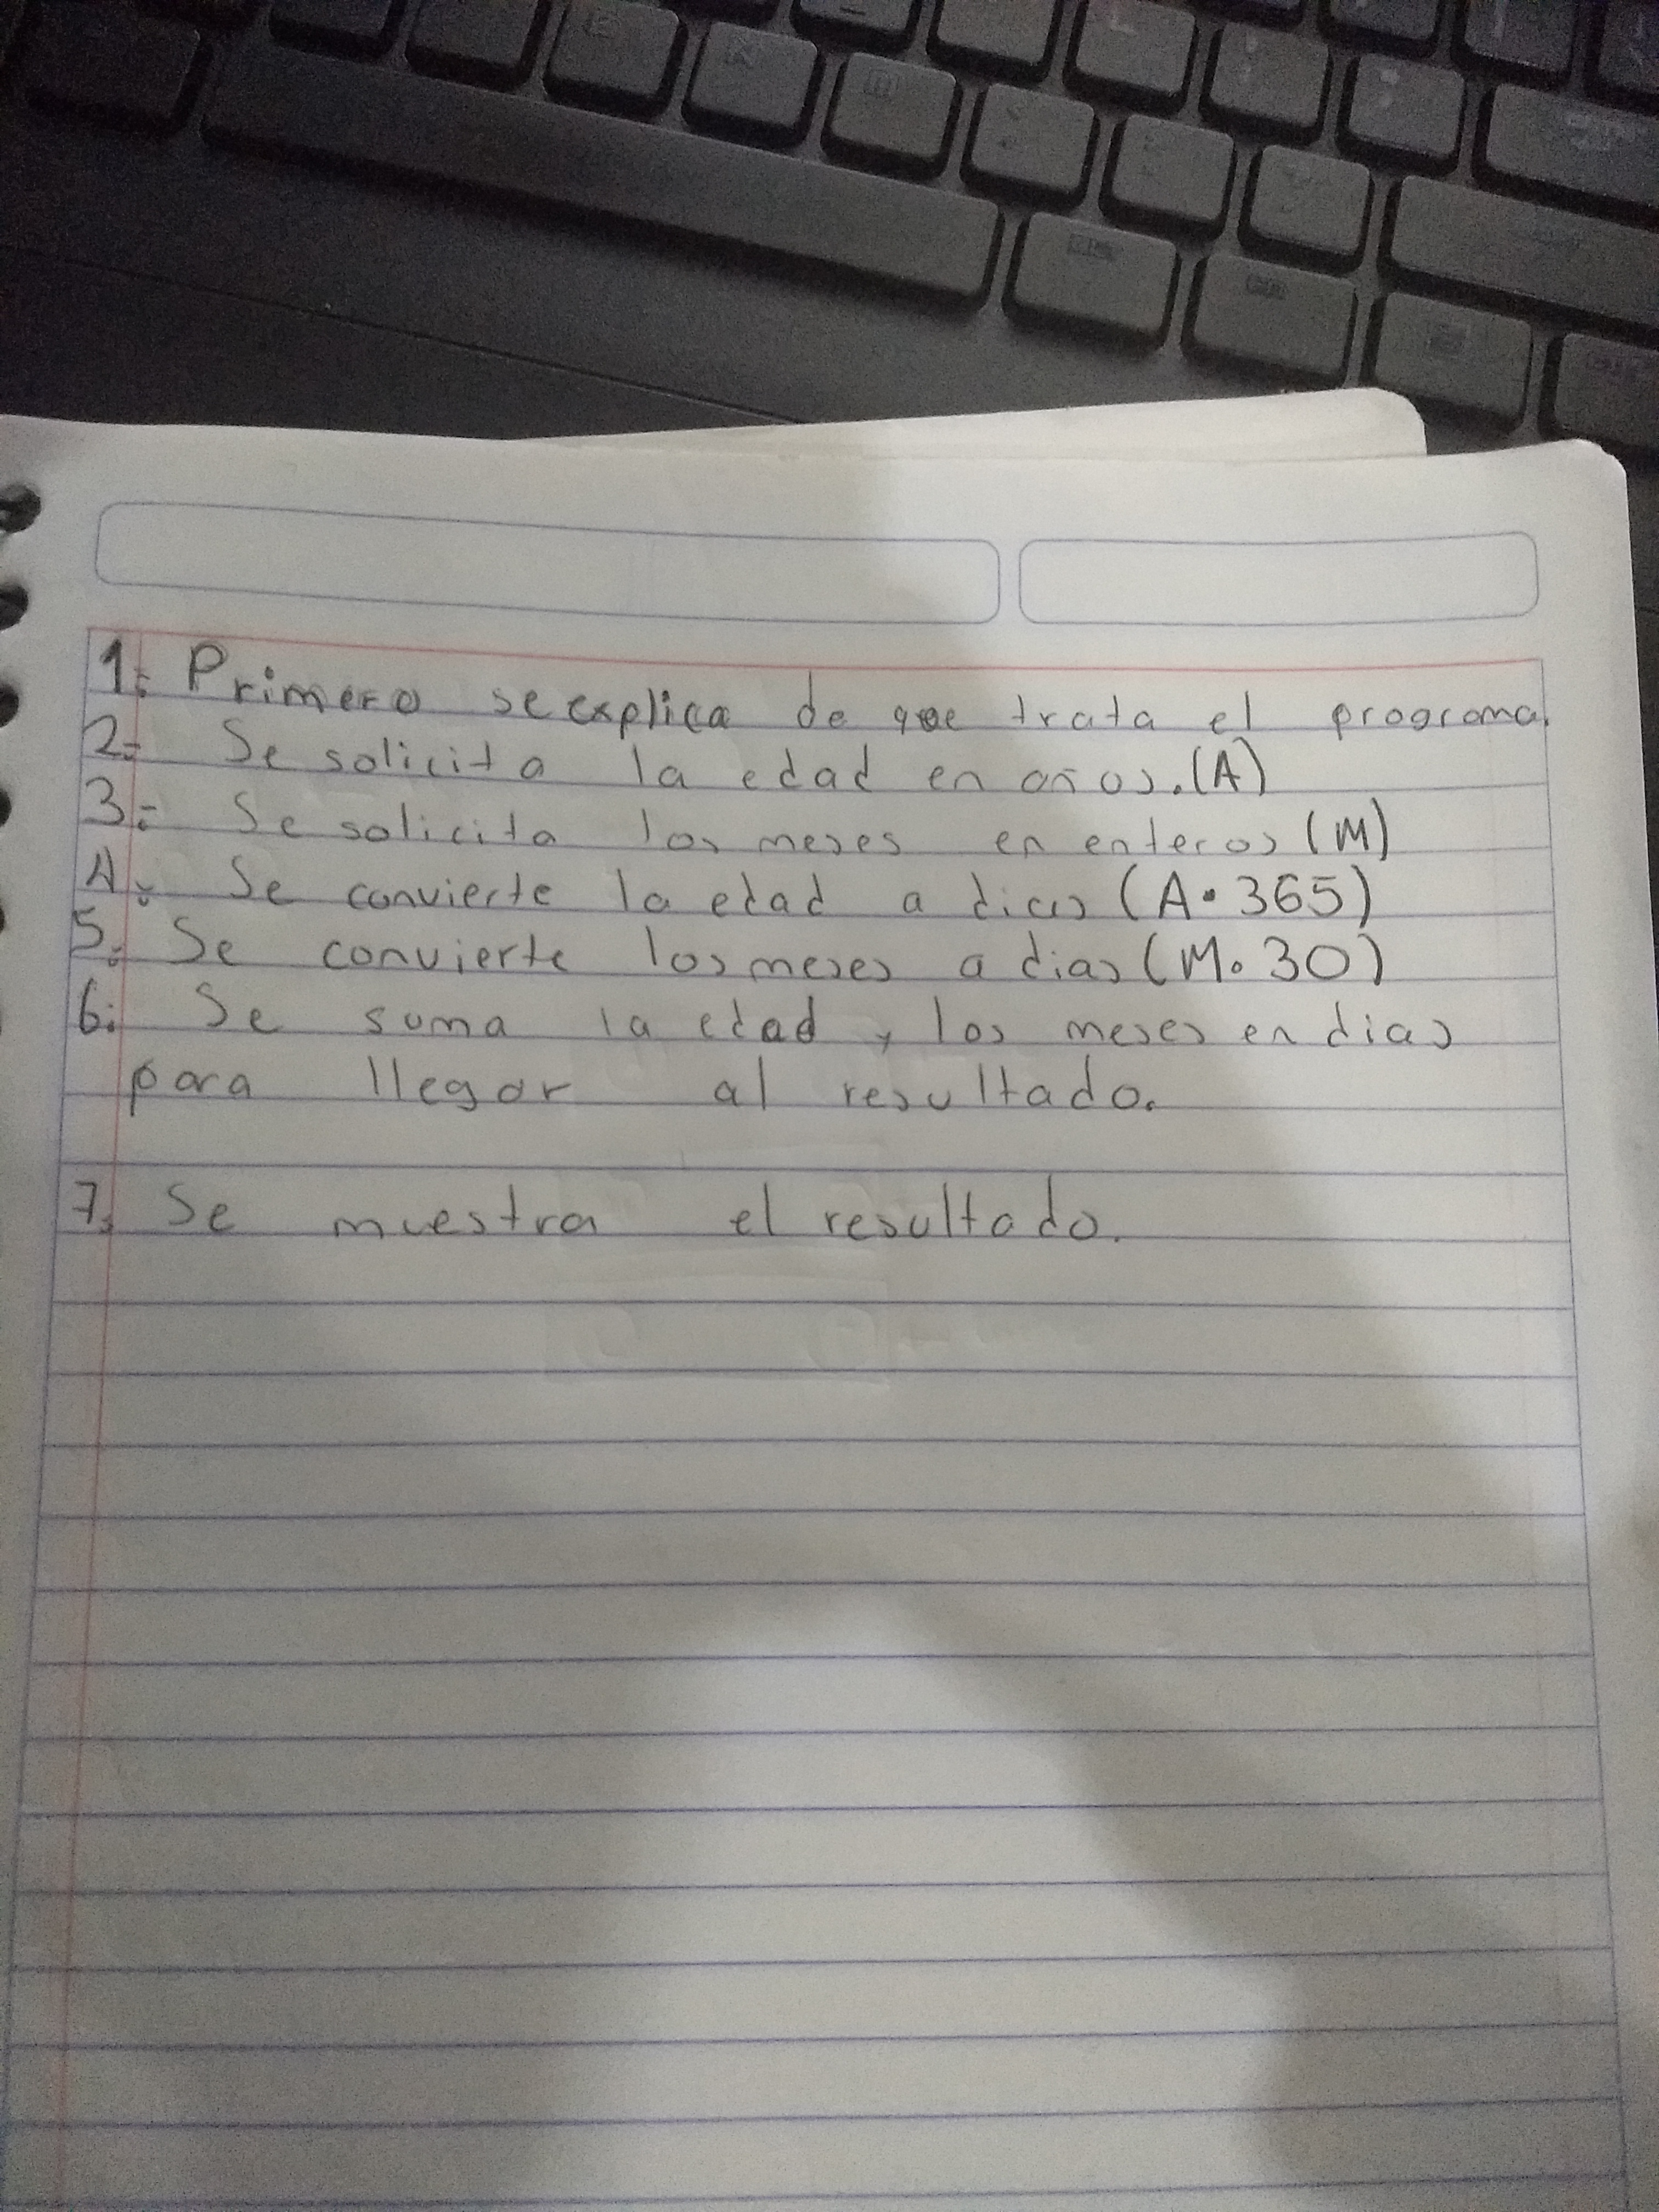 1: Primero se explica de que trata el programa.
2: Se solicita la edad en años.(A)
3: Se solicita los meses en enteros (M)
4: Se convierte la edad a dias (A • 365)
5: Se convierte los meses a dias (M • 30)
6: Se suma la edad y los meses en dias
para llegar al resultado.
7: Se muestra el resultado.